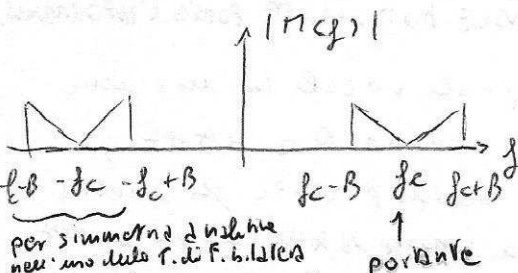 |M(f)|
-f-B -fc -fc+B fc-B fc fc+B f
per simmetria
nell'uso della T. di F. bilatera
portante